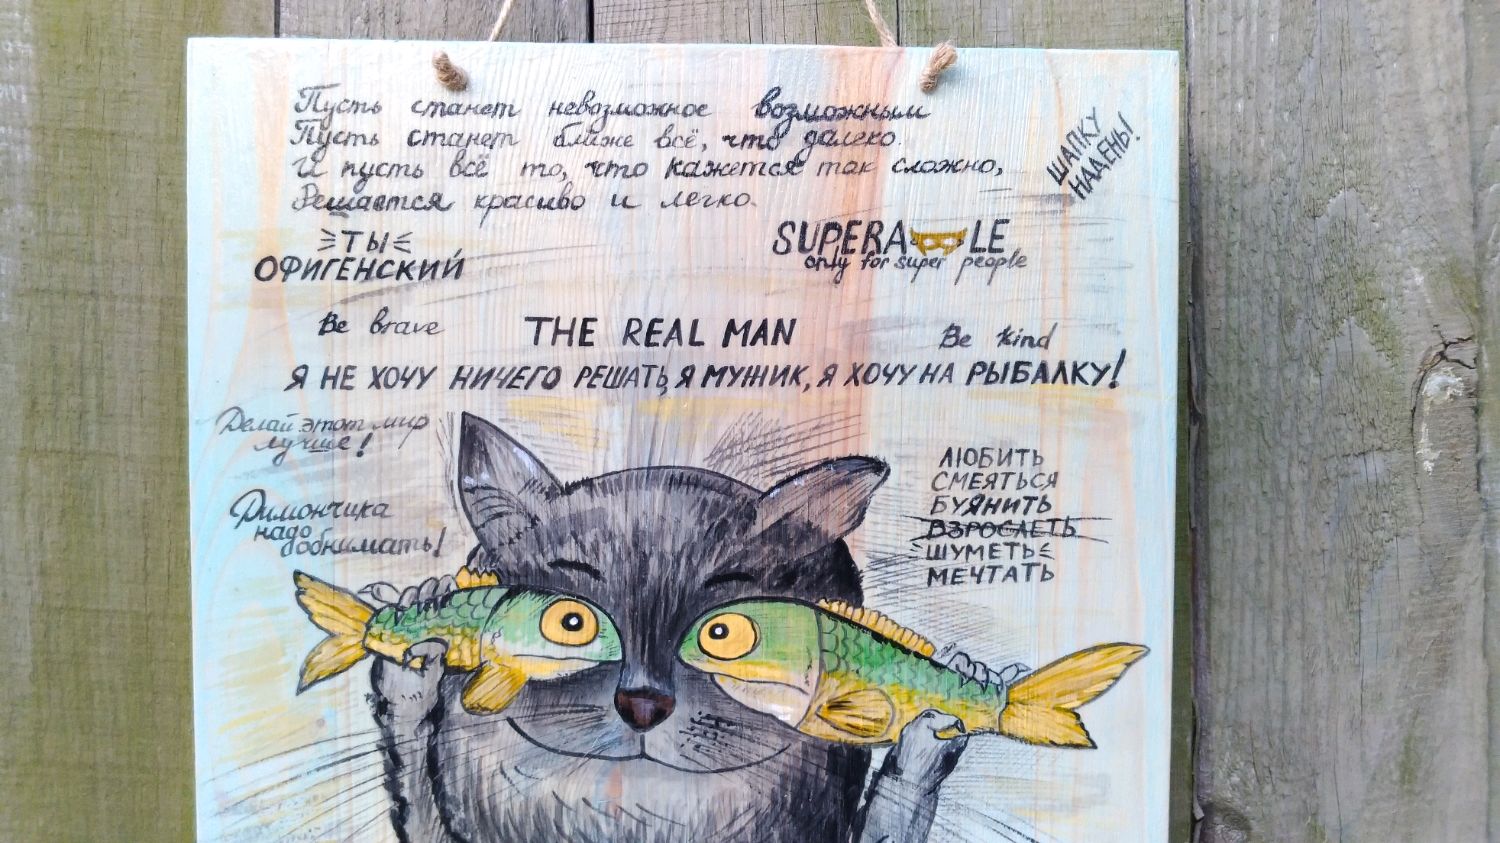 Пусть станет невозможное возможным
Пусть станет ближе всё, что далеко.
И пусть всё то, что кажется так сложно,
Решается красиво и легко.
ШАПКУ
НАДЕНЬ!
ТЫ
ОФИГЕНСКИЙ
SUPERA LE
only for super people
Be brave
THE REAL MAN
Be kind
Я НЕ ХОЧУ НИЧЕГО РЕШАТЬ, Я МУЖИК, Я ХОЧУ НА РЫБАЛКУ!
Делай этот мир
лучше!
Димончика
надо
обнимать!
ЛЮБИТЬ
СМЕЯТЬСЯ
БУЯНИТЬ
ВЗРОСЛЕТЬ
ШУМЕТЬ
МЕЧТАТЬ